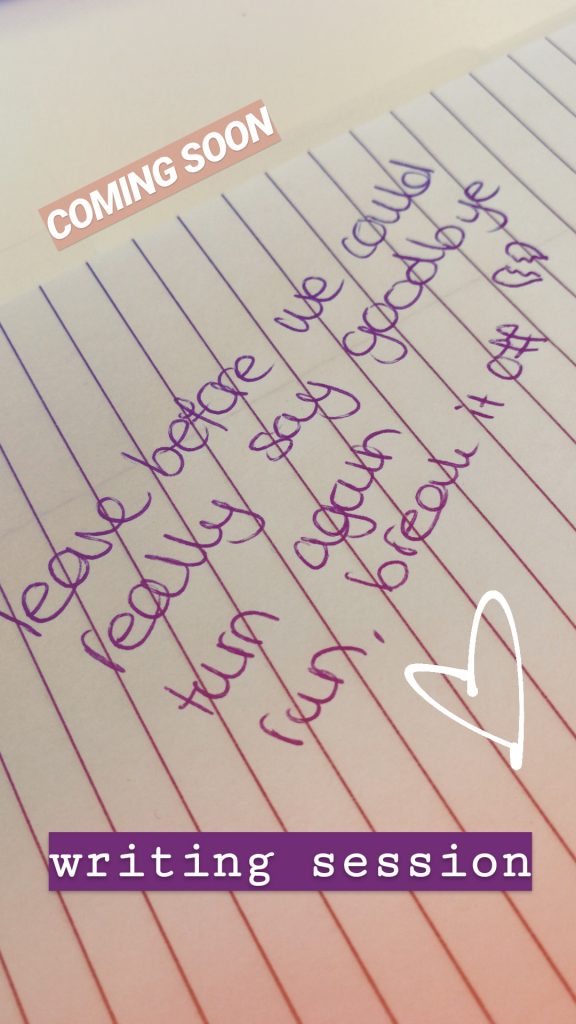 COMING SOON
leave before we could
really say goodbye
turn again
run. break it off
writing session